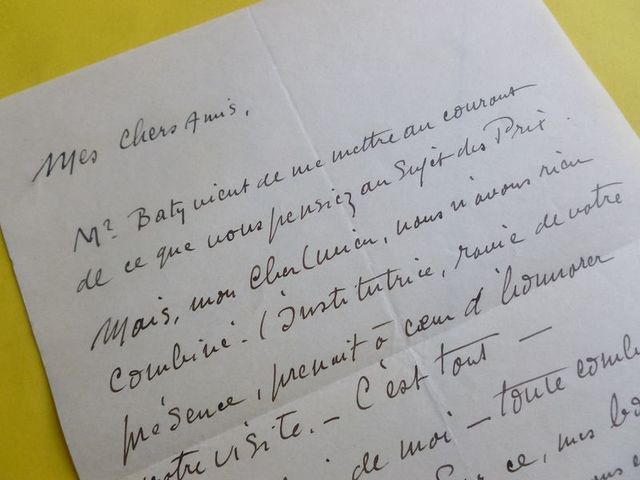 Mes chers Amis,
Mr. Baty vient de me mettre au courant
de ce que vous pensiez au Sujet des Prix.
Mais, mon cher Lucien, nous n'avons rien
combiné. L'institutrice, ravie de votre
présence, prenait à cœur d'honnorer
votre visite. – C'est tout –
de moi – toute comb
ce, mes bo